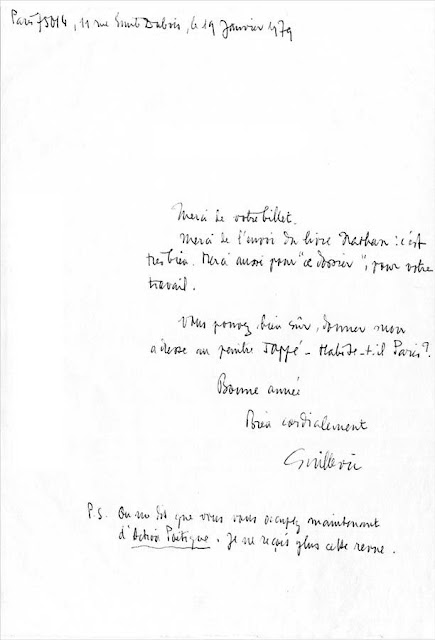 Paris 75014, 11 rue Emile Dubois, le 19 Janvier 1979
Merci de votre billet.
Merci de l'envoi du livre Nathan : c'est
très bien. Merci aussi pour "ce dossier", pour votre
travail.
Vous pouvez, bien sûr, donner mon
adresse au peintre Jappé - Habite-t-il Paris?
Bonne année
Bien cordialement
Guillevic
P.S. On me dit que vous vous occupez maintenant
d'Action Poétique. Je ne reçois plus cette revue.